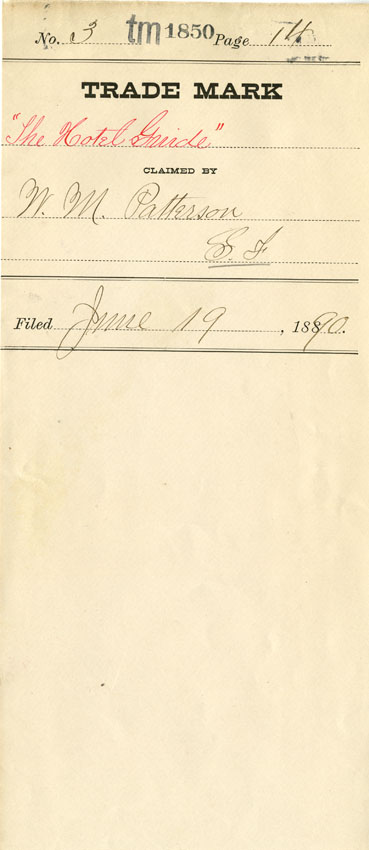 No. 3 tm 1850 Page 14
TRADE MARK
"The Hotel Guide"
CLAIMED BY
W. M. Patterson
S. F.
Filed June 19, 1890.